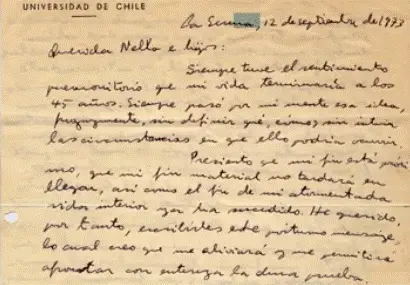 UNIVERSIDAD DE CHILE
La Serena, 12 de septiembre de 1973
Querida Nella e hijos:
Siempre tuve el sentimiento
premonitorio que mi vida terminaría a los
45 años. Siempre pasó por mi mente esa idea,
fugazmente, sin definir qué, cómo, sin intuir
las circunstancias en que ello podría ocurrir.
Presiento que mi fin está próxi
mo, que mi fin material no tardará en
llegar, así como el fin de mi atormentada
vida interior ya ha sucedido. He querido,
por tanto, escribirles este póstumo mensaje,
lo cual creo que me aliviará y me permitirá
afrontar con entereza la dura prueba.